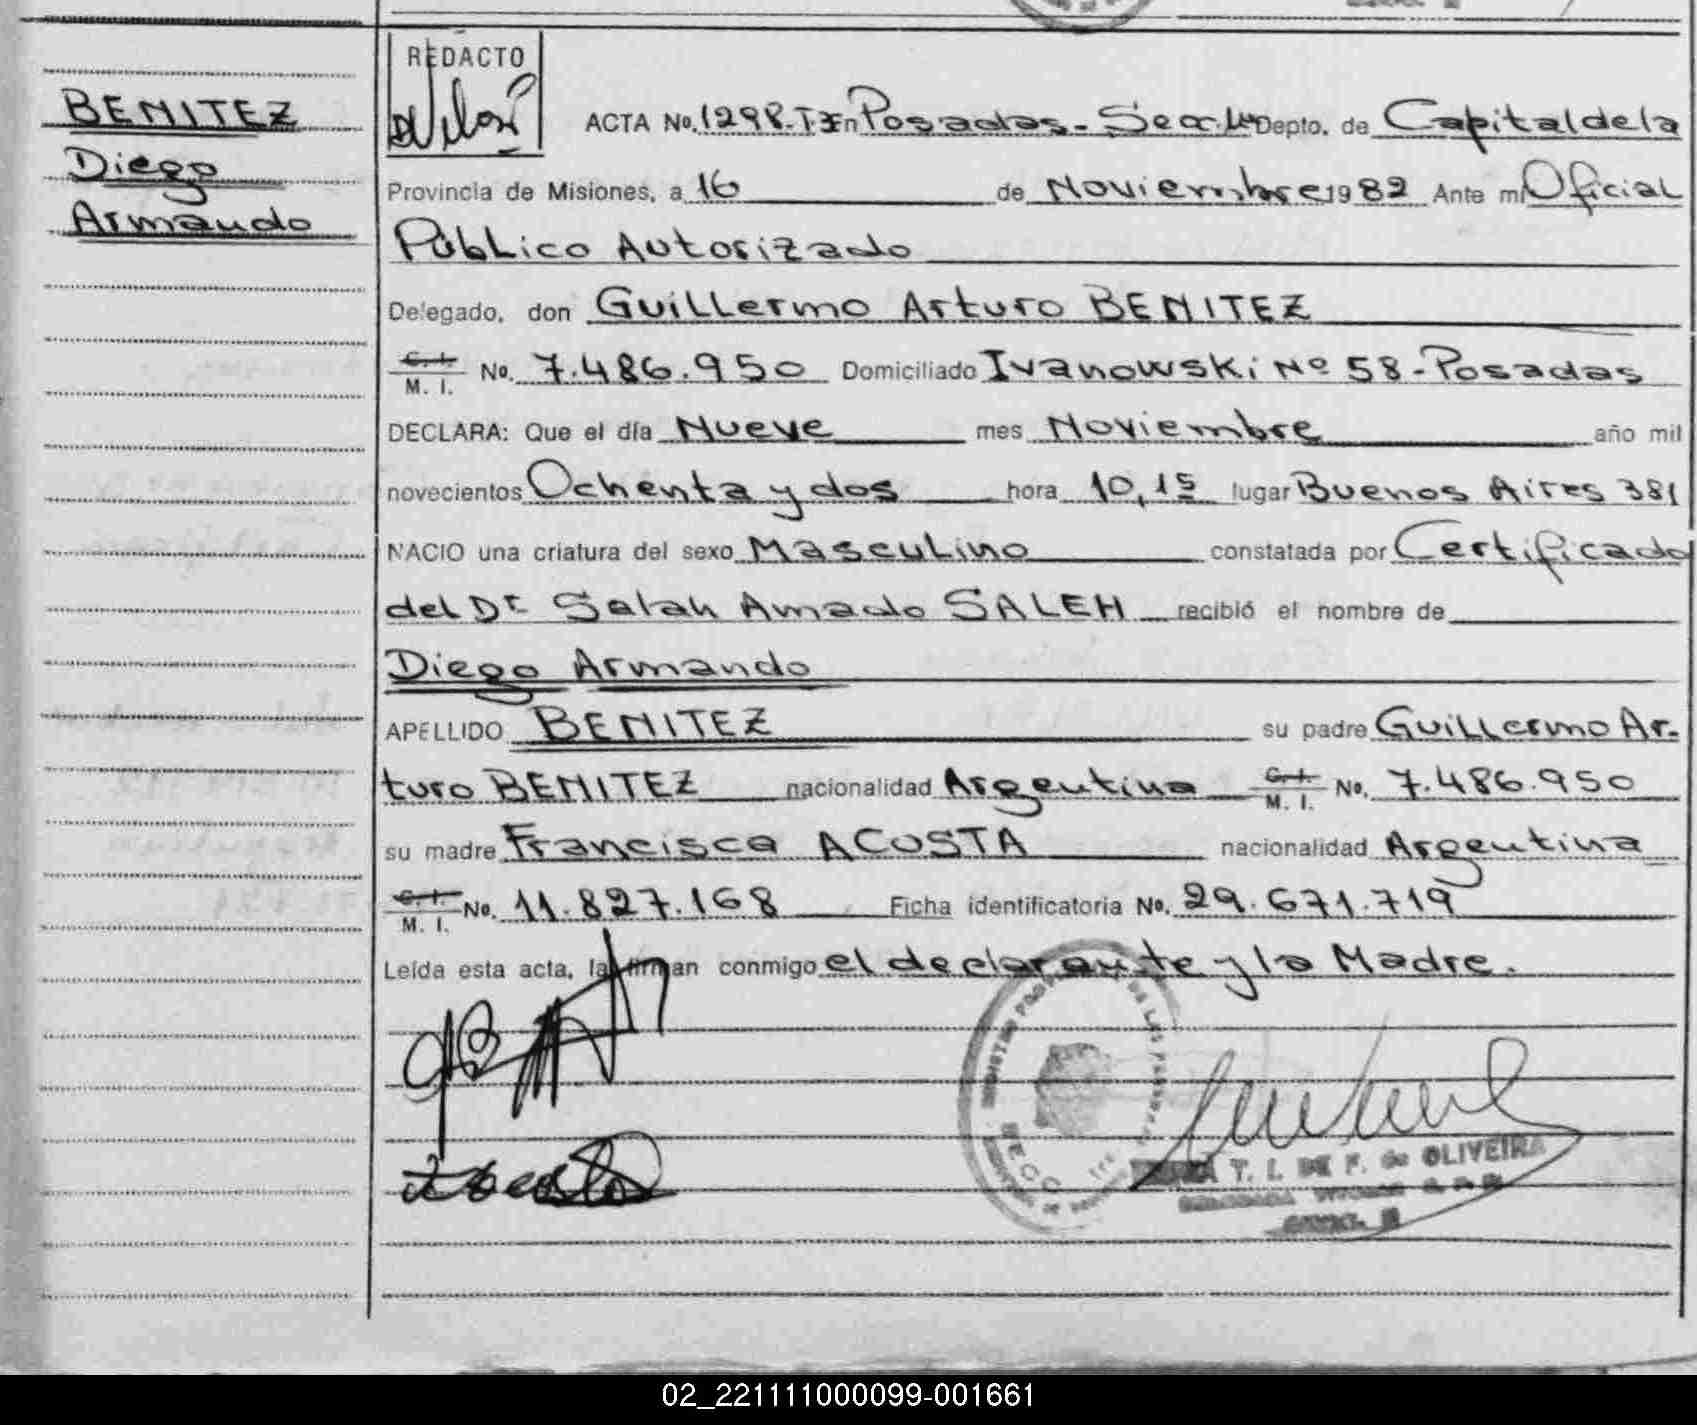 BENITEZ
Diego
Armando
REDACTO
ACTA No. 1298-T- En Posadas- Depto. de Capital de la
Provincia de Misiones, a 16 de Noviembre 1982 Ante mi Oficial
Público Autorizado
Delegado, don Guillermo Arturo BENITEZ
C. I.
M. I. No. 7.486.950 Domiciliado Ivanowski Nº 58-Posadas
DECLARA: Que el día Nueve mes Noviembre año mil
novecientos Ochenta y dos hora 10,15 lugar Buenos Aires 381
NACIO una criatura del sexo Masculino constatada por Certificado
del Dr Salah Amado SALEH recibió el nombre de
Diego Armando
APELLIDO BENITEZ su padre Guillermo Ar-
turo BENITEZ nacionalidad Argentina C. I. M. I. No. 7.486.950
su madre Francisca ACOSTA nacionalidad Argentina
C. I. M. I. No. 11.827.168 Ficha identificatoria No. 29.671.719
Leída esta acta, la firman conmigo el declarante y la Madre.
T. I. DE F. de OLIVEIRA
02_221111000099-001661